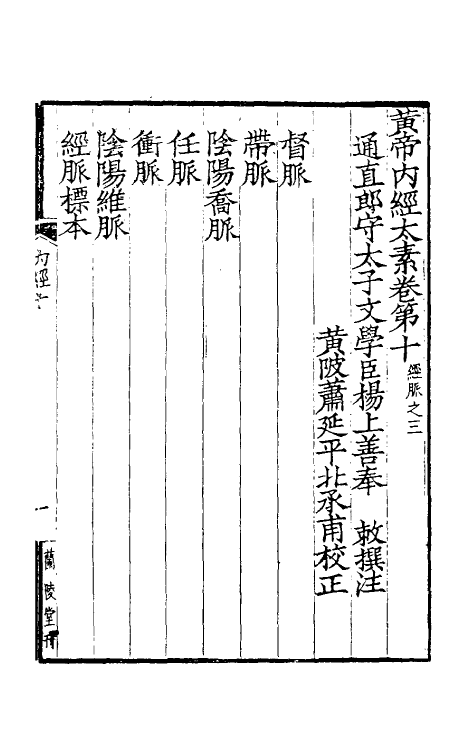 黃帝内經太素卷第十 經脈之三
通直郎守太子文學臣楊上善奉 敕撰注
黃陂蕭延平北承甫校正
督脈
帶脈
陰陽喬脈
任脈
衝脈
陰陽維脈
經脈標本
内經十
一
蘭陵堂刊